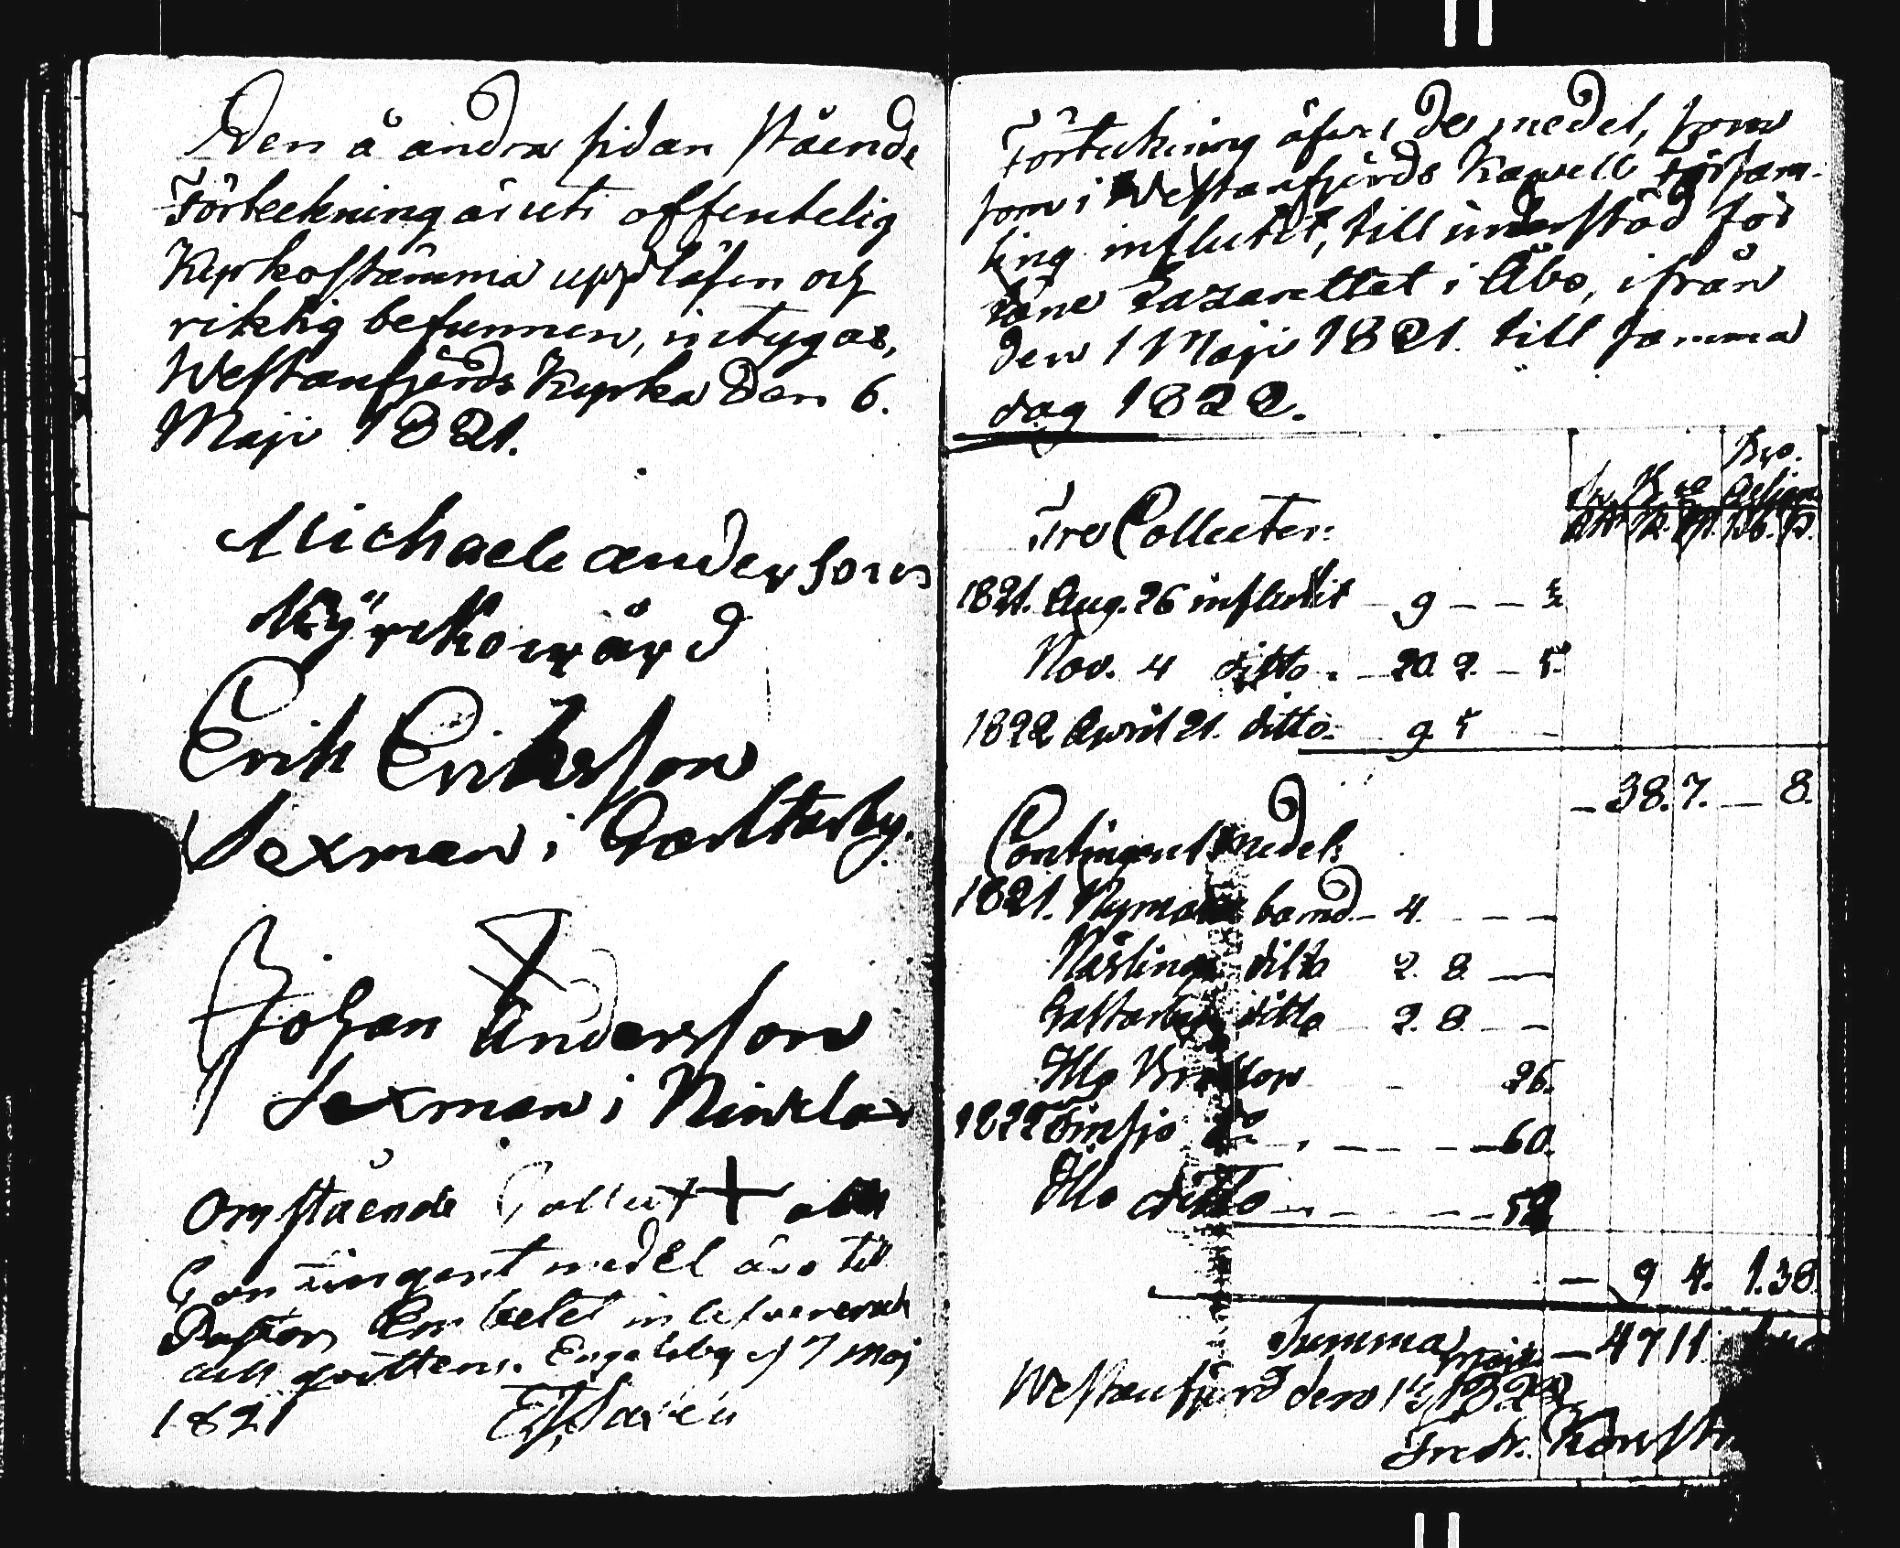 Den å andra sidan stående
Förteckning är uti offentelig
Kyrkostämma uppläsen och
riktig befunnen, intygas,
Westanfjerds Kyrka den 6.
Maji 1821.
Michael andersson
Kÿrckowård
Erik Eriksson
Sexman i Galltarby.
Johan Andersson
Sexman i Nivelax
Omstående Collect
Contingent medel äro till
Pastors Embetet inlefvererade
och qvitteras. Engelsby d 7 Maj
1821
Förteckning öfver de medel, som
som i Westanfjerds Kapell Församling
ling influtit, till understöd för
Lazarettet i Åbo, ifrån
den 1 Maji 1821. till samma
dag 1822.
Bco.
Tre Collecter:
1821. Aug. 26 influtit 9 - - 3
Nov. 4 ditto 20 2. - 5.
1822 April 21. ditto 9 5 -
- 38. 7. - 8.
Contingent medel:
1821. Nyman 4. - - -
ditto 2. 8. -
ditto 2. 8. - -
Illo 26.
1822 - - - - 60.
Illo ditto - - - - 52
- 9 4. 1.38
Summa - 47 11
Westanfjerd den Maji 1822
Fredr.